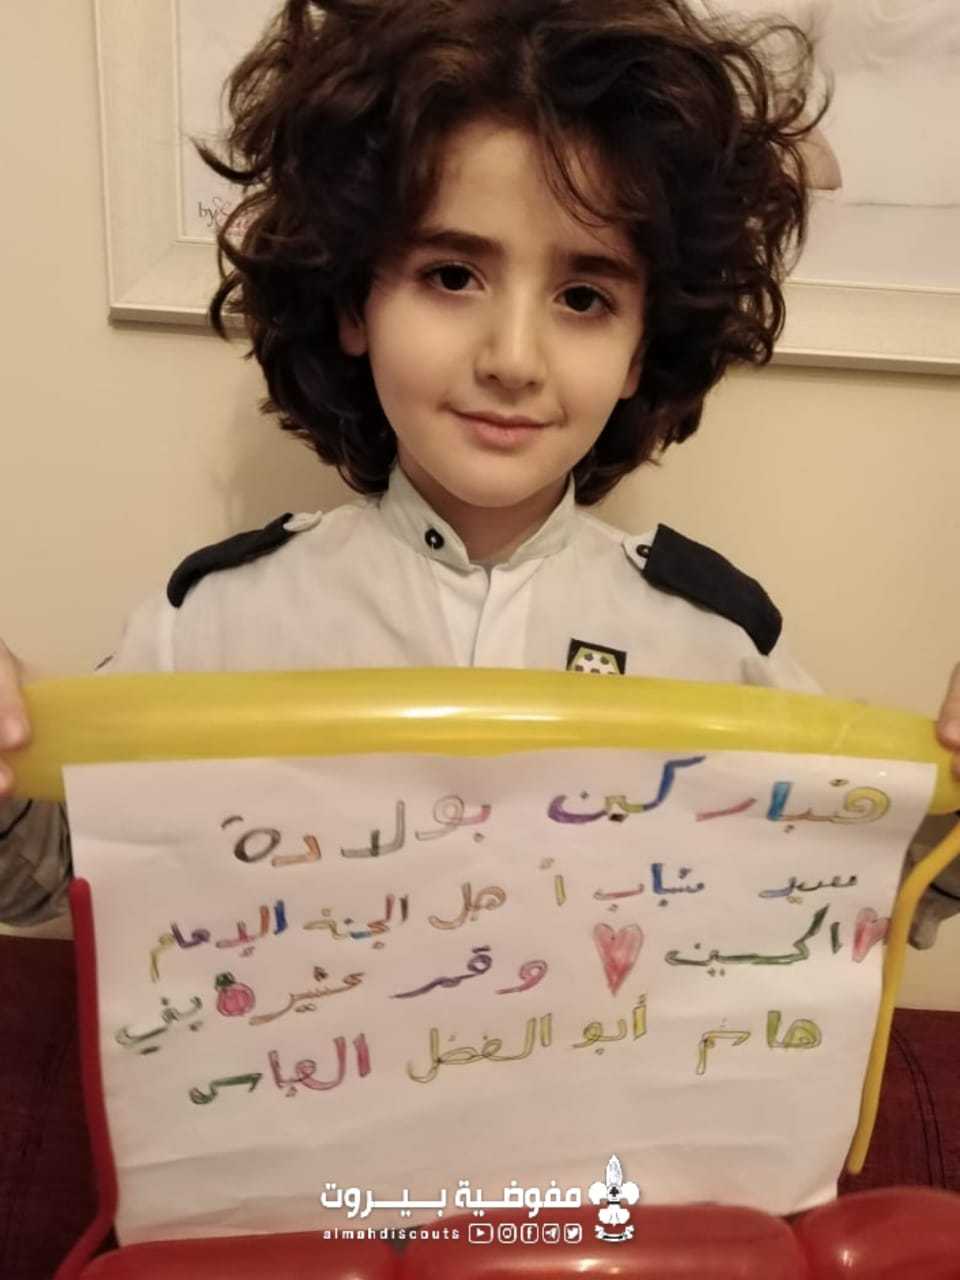 by
مباركين بولادة
سيد شباب أهل الجنة الإمام
الحسين وقمر عشير بني
هاشم أبو الفضل العباس
مفوضية بيروت
almahdiscouts